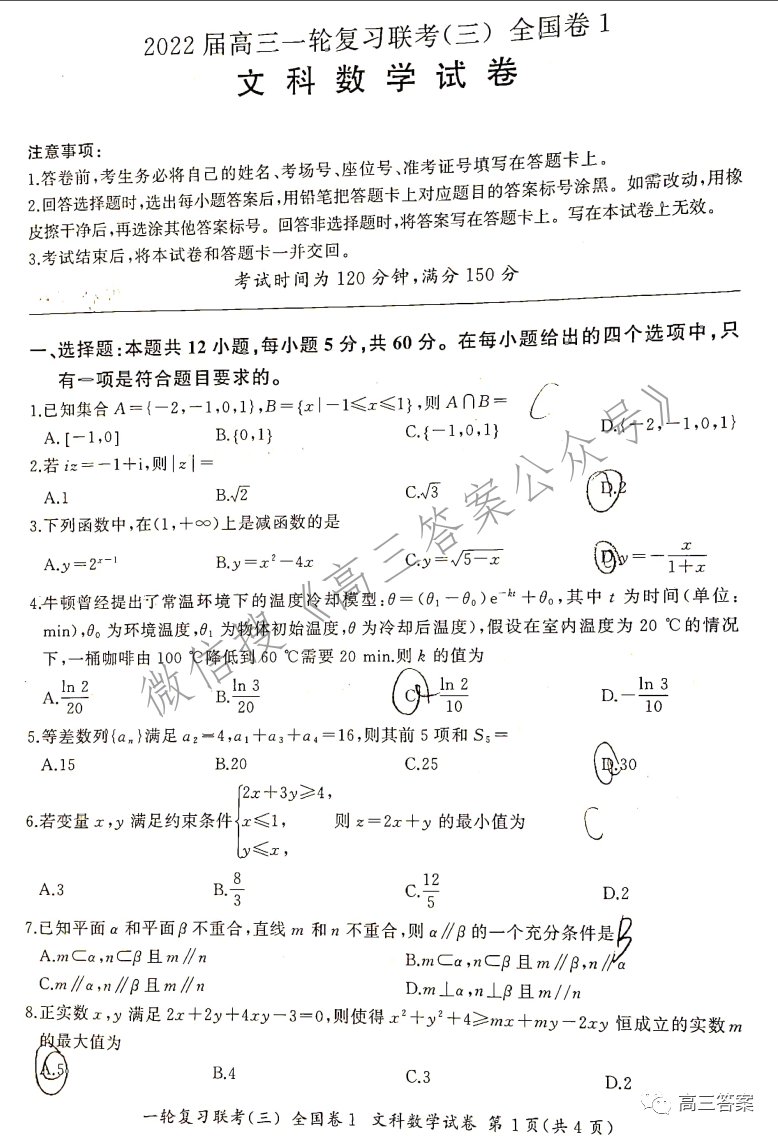 2022 届高三一轮复习联考(三) 全国卷 1
文 科 数 学 试 卷
注意事项:
1.答卷前,考生务必将自己的姓名、考场号、座位号、准考证号填写在答题卡上。
2.回答选择题时,选出每小题答案后,用铅笔把答题卡上对应题目的答案标号涂黑。如需改动,用橡
皮擦干净后,再选涂其他答案标号。回答非选择题时,将答案写在答题卡上。写在本试卷上无效。
3.考试结束后,将本试卷和答题卡一并交回。
考试时间为 120 分钟,满分 150 分
一、选择题:本题共 12 小题,每小题 5 分,共 60 分。在每小题给出的四个选项中,只
有一项是符合题目要求的。
1.已知集合 A={-2,-1,0,1},B={x|-1≤x≤1},则 A∩B= C
A.[-1,0] B.{0,1} C.{-1,0,1} D.{-2,-1,0,1}
2.若 iz=-1+i,则|z|=
A.1 B.√2 C.√3 D.2
3.下列函数中,在(1,+∞)上是减函数的是
A.y=2^{x-1} B.y=x²-4x C.y=√(5-x) D.y=-x/(1+x)
4.牛顿曾经提出了常温环境下的温度冷却模型:θ=(θ₁-θ₀)e^{-kt}+θ₀,其中 t 为时间(单位:
min),θ₀ 为环境温度,θ₁ 为物体初始温度,θ 为冷却后温度),假设在室内温度为 20 ℃的情况
下,一桶咖啡由 100 ℃降低到 60 ℃需要 20 min.则 k 的值为
A.ln 2/20 B.ln 3/20 C.-ln 2/10 D.-ln 3/10
5.等差数列{aₙ}满足 a₂=4,a₁+a₃+a₄=16,则其前 5 项和 S₅=
A.15 B.20 C.25 D.30
6.若变量 x,y 满足约束条件{2x+3y≥4, x≤1, y≤x, 则 z=2x+y 的最小值为 C
A.3 B.8/3 C.12/5 D.2
7.已知平面 α 和平面 β 不重合,直线 m 和 n 不重合,则 α∥β 的一个充分条件是 B
A.m⊂α,n⊂β 且 m∥n B.m⊂α,n⊂β 且 m∥β,n∥α
C.m∥α,n∥β 且 m∥n D.m⊥α,n⊥β 且 m//n
8.正实数 x,y 满足 2x+2y+4xy-3=0,则使得 x²+y²+4≥mx+my-2xy 恒成立的实数 m
的最大值为
A.5 B.4 C.3 D.2
一轮复习联考(三) 全国卷 1 文科数学试卷 第 1 页(共 4 页)
微信搜《高三答案公众号》
高三答案